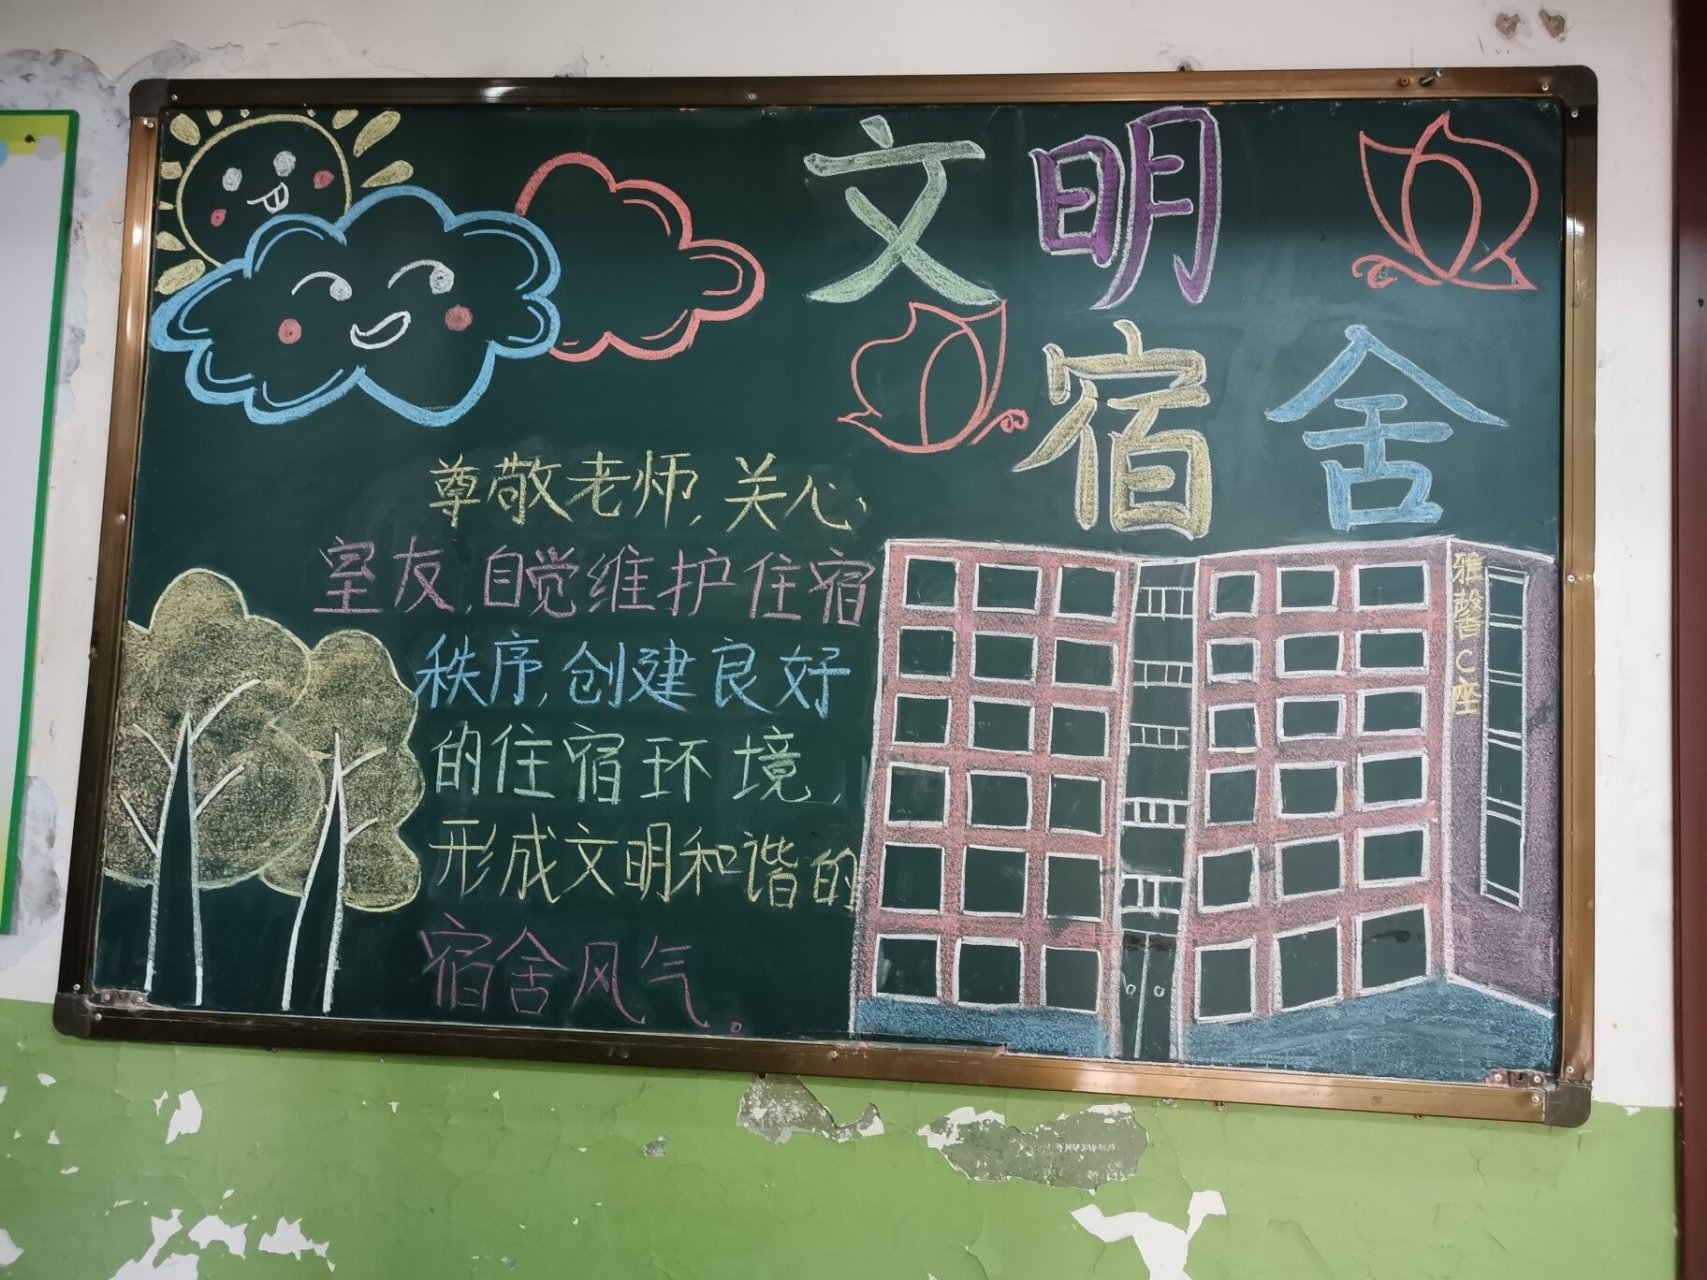 文明
宿舍
尊敬老师,关心
室友,自觉维护住宿
秩序,创建良好
的住宿环境,
形成文明和谐的
宿舍风气。
雅馨C座